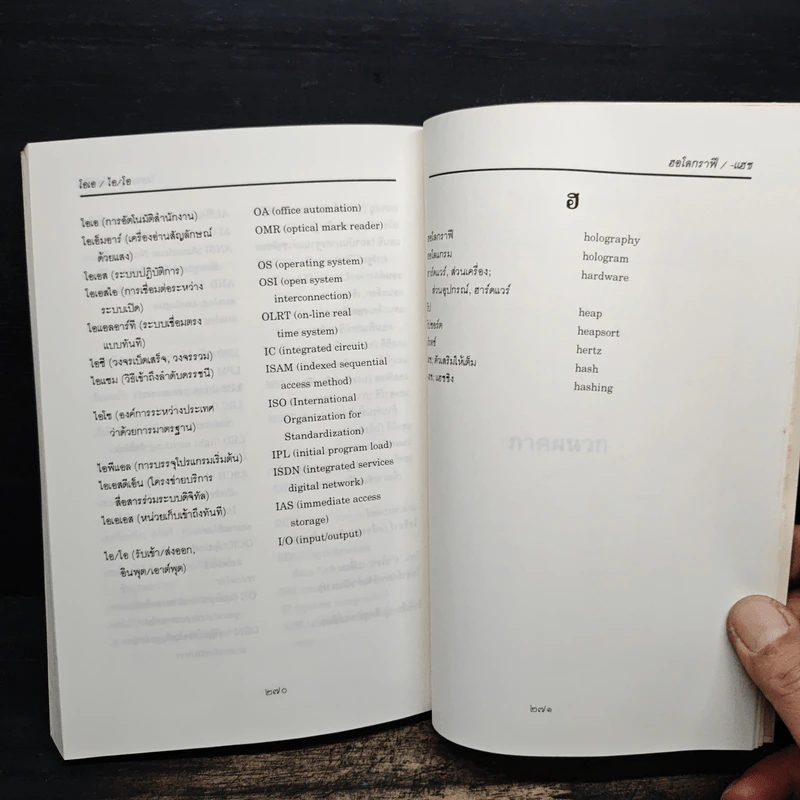 โอเอ / ไอ/โอ
โอเอ (การอัตโนมัติสำนักงาน)
OA (office automation)
โอเอ็มอาร์ (เครื่องอ่านสัญลักษณ์
ด้วยแสง)
OMR (optical mark reader)
โอเอส (ระบบปฏิบัติการ)
OS (operating system)
โอเอสไอ (การเชื่อมต่อระหว่าง
ระบบเปิด)
OSI (open system
interconnection)
โอแอลอาร์ที (ระบบเชื่อมตรง
แบบทันที)
OLRT (on-line real
time system)
ไอซี (วงจรเบ็ดเสร็จ, วงจรรวม)
IC (integrated circuit)
ไอแซม (วิธีเข้าถึงลำดับดรรชนี)
ISAM (indexed sequential
access method)
ไอโซ (องค์การระหว่างประเทศ
ว่าด้วยการมาตรฐาน)
ISO (International
Organization for
Standardization)
ไอพีแอล (การบรรจุโปรแกรมเริ่มต้น)
IPL (initial program load)
ไอเอสดีเอ็น (โครงข่ายบริการ
สื่อสารร่วมระบบดิจิทัล)
ISDN (integrated services
digital network)
ไอเอเอส (หน่วยเก็บเข้าถึงทันที)
IAS (immediate access
storage)
ไอ/โอ (รับเข้า/ส่งออก,
อินพุต/เอาต์พุต)
I/O (input/output)
๒๗๐
ฮอโลกราฟี / -แฮช
ฮ
ฮอโลกราฟี
holography
hologram
ส่วนเครื่อง;
ส่วนอุปกรณ์, ฮาร์ดแวร์
hardware
heap
heapsort
hertz
ตัวเสริมให้เต็ม
hash
แฮชชิง
hashing
๒๗๑